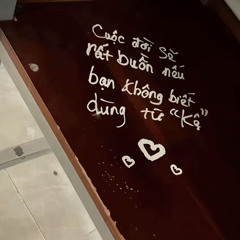 Cuộc đời sẽ
rất buồn nếu
bạn không biết
dùng từ "Kệ"